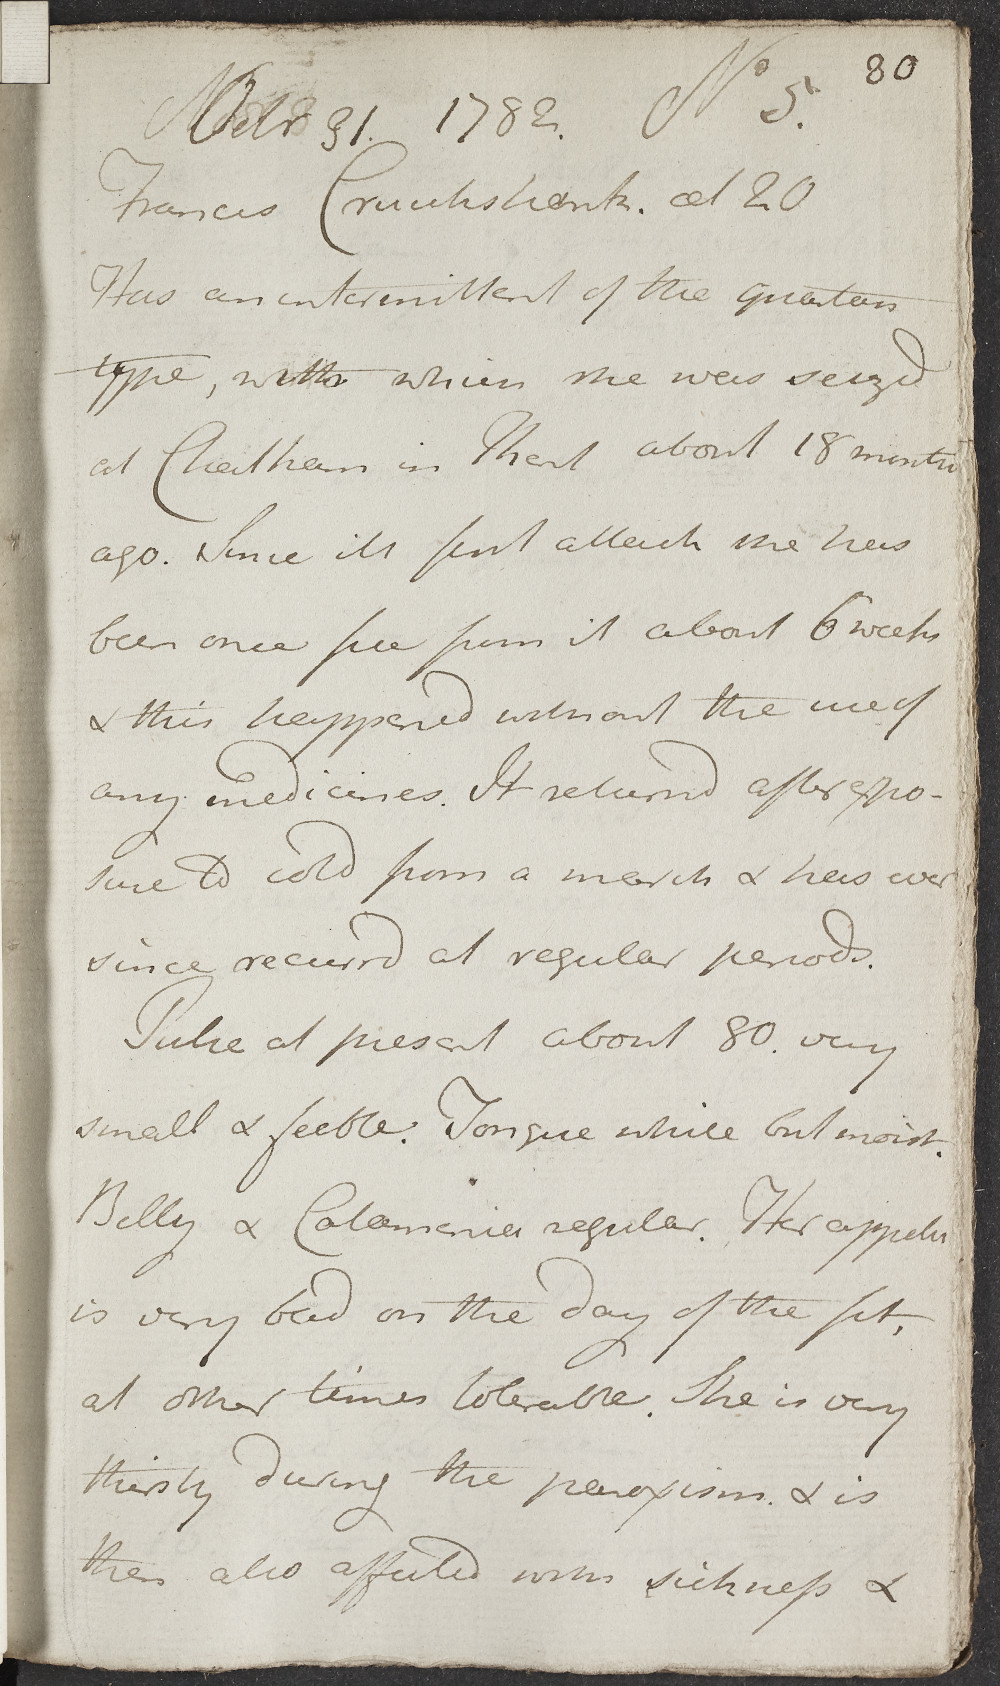 80
Octr 31. 1782. No 5.
Francis Cruickshank. æt 20
Has an intermittent of the quartan
type, with which she was seized
at Chatham in Kent about 18 months
ago. Since its first attack she has
been once free from it about 6 weeks
& this happened without the use of
any medicines. It returnd after expo-
sure to cold from a march & has ever
since recurrd at regular periods.
Pulse at present about 80. very
small & feeble. Tongue white but moist.
Belly & Catamenia regular. Her appetite
is very bad on the day of the fit,
at other times tolerable. She is very
thirsty during the paroxism. & is
then also affected with sickness &